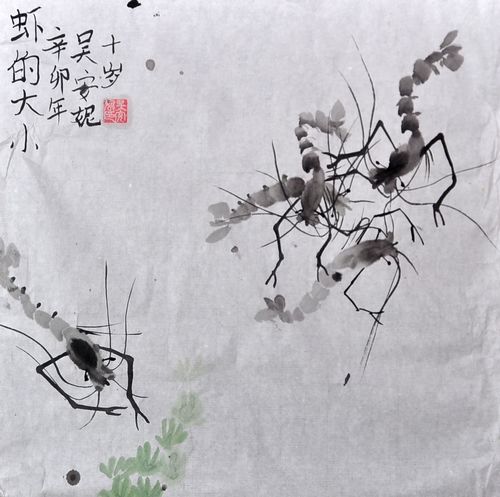 虾的大小
辛卯年
吴安妮
十岁